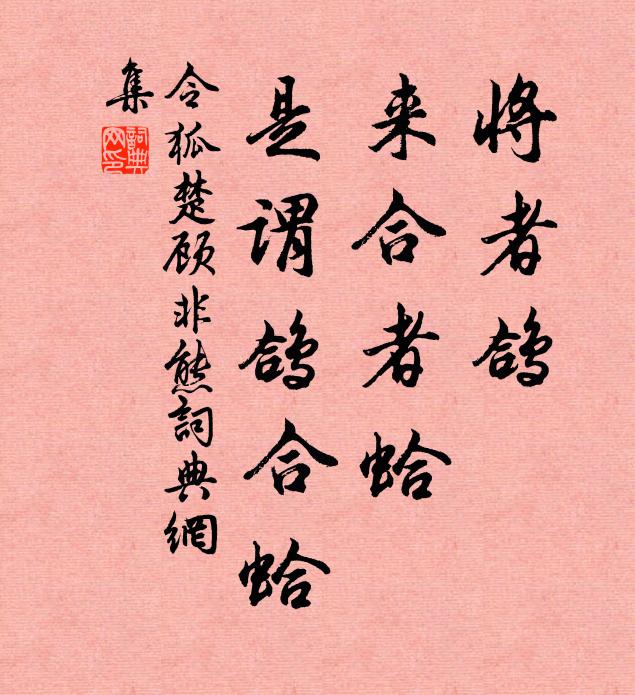 将者鸽
来合者蛤
是谓鸽合蛤
令狐楚顾非熊詞典網
集
詞典網印